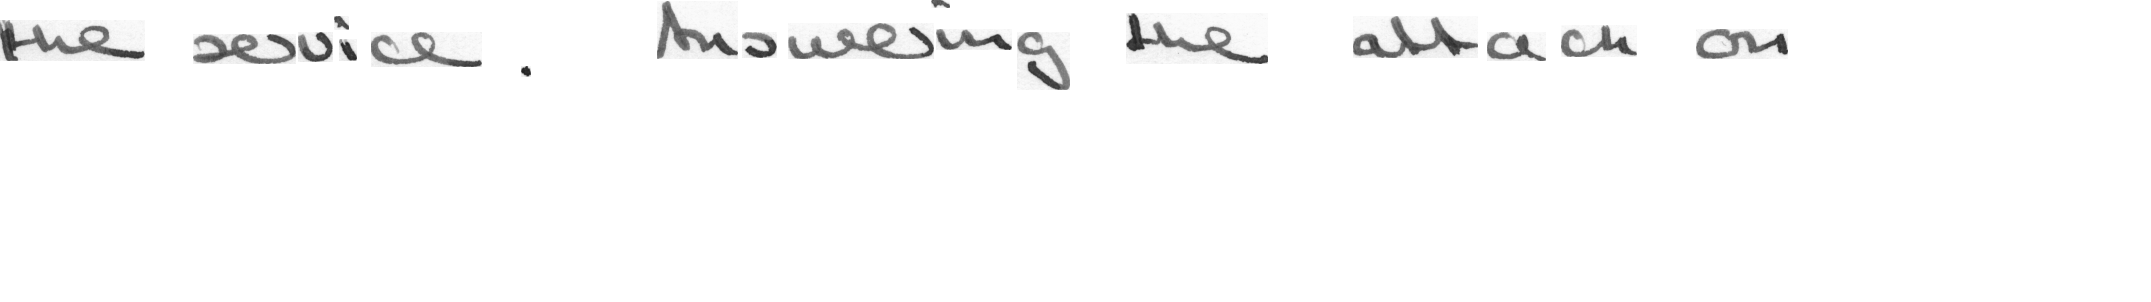 the service. Answering the attack on